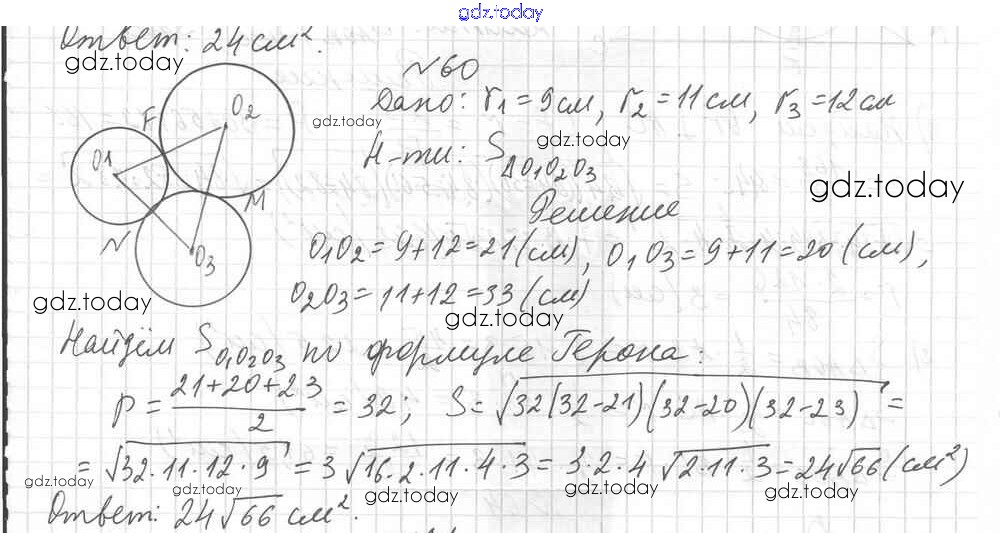 gdz.today
Ответ: 24 см².
gdz.today
№60
Дано: r₁ = 9 см, r₂ = 11 см, r₃ = 12 см
gdz.today
gdz.today
Н-ти: S△O₁O₂O₃
gdz.today
F
O₂
O1
M
N
O₃
Решение
O₁O₂ = 9 + 12 = 21 (см), O₁O₃ = 9 + 11 = 20 (см),
O₂O₃ = 11 + 12 = 33 (см)
gdz.today
gdz.today
Найдём S O₁O₂O₃ по формуле Герона:
P = (21 + 20 + 23)/2 = 32; S = √(32(32-21)(32-20)(32-23)) =
= √(32·11·12·9) = 3√(16·2·11·4·3) = 3·2·4√(2·11·3) = 24√66 (см²)
gdz.today
gdz.today
gdz.today
gdz.today
gdz.today
Ответ: 24√66 см².